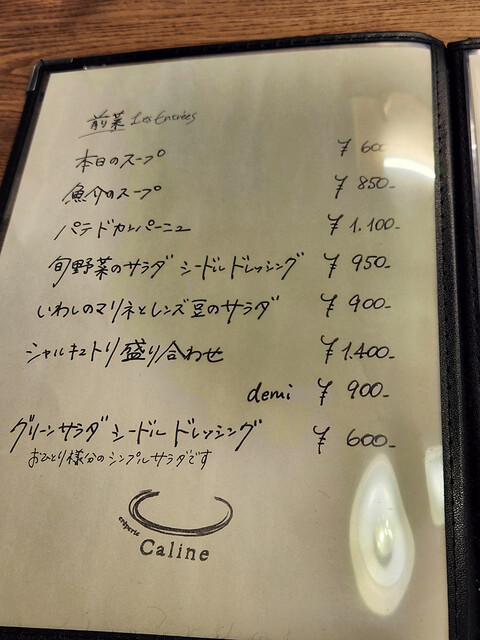 前菜 Les Entrées
本日のスープ ¥ 600
魚介のスープ ¥ 850-
パテドカンパーニュ ¥ 1.100-
旬野菜のサラダ シードルドレッシング ¥ 950-
いわしのマリネとレンズ豆のサラダ ¥ 900-
シャルキュトリ盛り合わせ ¥ 1.400-
demi ¥ 900-
グリーンサラダ シードルドレッシング ¥ 600-
おひとり様分のシンプルサラダです
crêperie
Caline